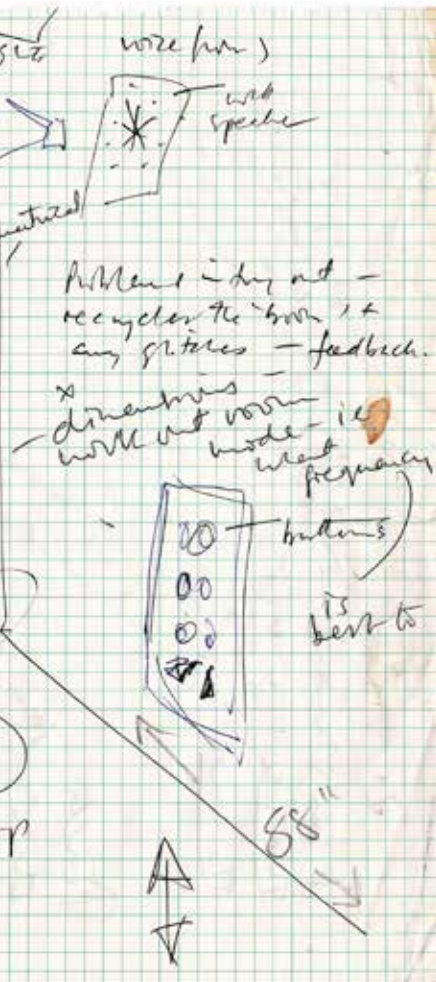 voice from)
speaker
Problems in try out -
recycles the 'boom', +
any glitches - feedback.
x
dimensions -
work out room
mode - ie
what
frequency
buttons
is
best to
88"